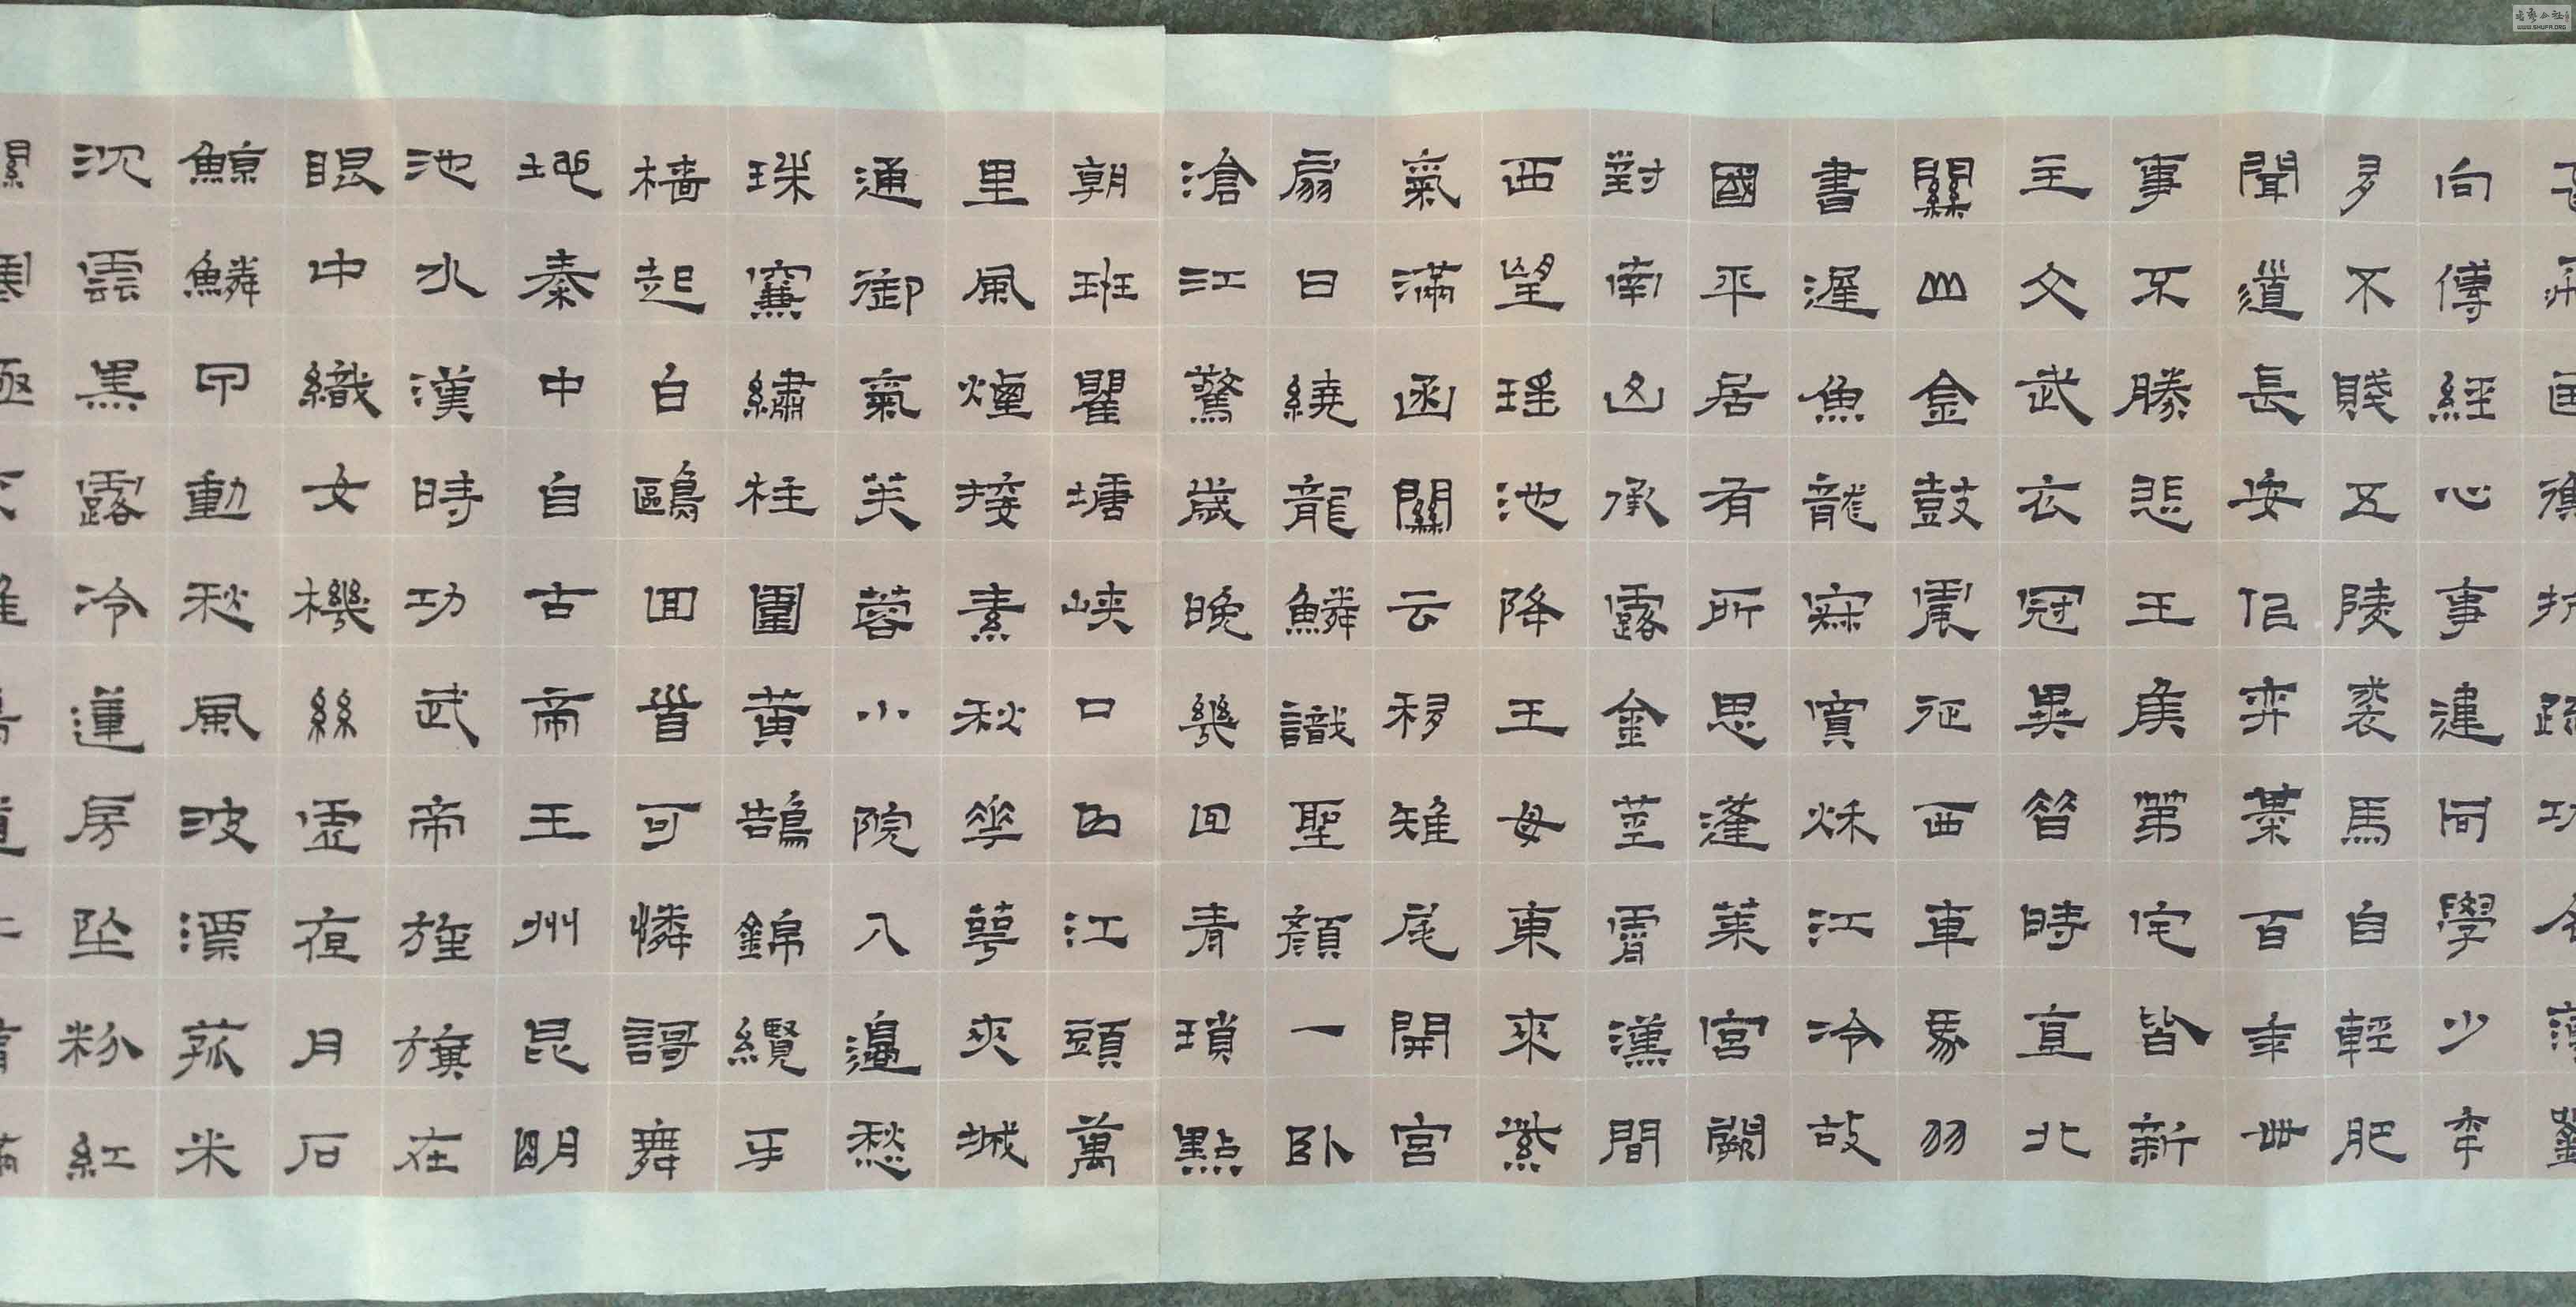 飛匡衡抗疏功名薄劉
向傳經心事違同學少年
多不賤五陵裘馬自輕肥
聞道長安似弈棊百年世
事不勝悲王侯第宅皆新
主文武衣冠異昔時直北
關山金鼓震征西車馬羽
書遲魚龍寂寞秋江冷故
國平居有所思蓬萊宮闕
對南山承露金莖霄漢間
西望瑤池降王母東來紫
氣滿函關云移雉尾開宮
扇日繞龍鱗識聖顏一臥
滄江驚歲晚幾回青瑣點
朝班瞿塘峽口曲江頭萬
里風煙接素秋華萼夾城
通御氣芙蓉小院入邊愁
珠簾繡柱圍黃鵠錦纜牙
檣起白鷗回首可憐謌舞
地秦中自古帝王州昆明
池水漢時功武帝旌旗在
眼中織女機絲虛夜月石
鯨鱗甲動秋風波漂菰米
沈雲黑露冷蓮房墜粉紅
WWW.SHUFA.ORG